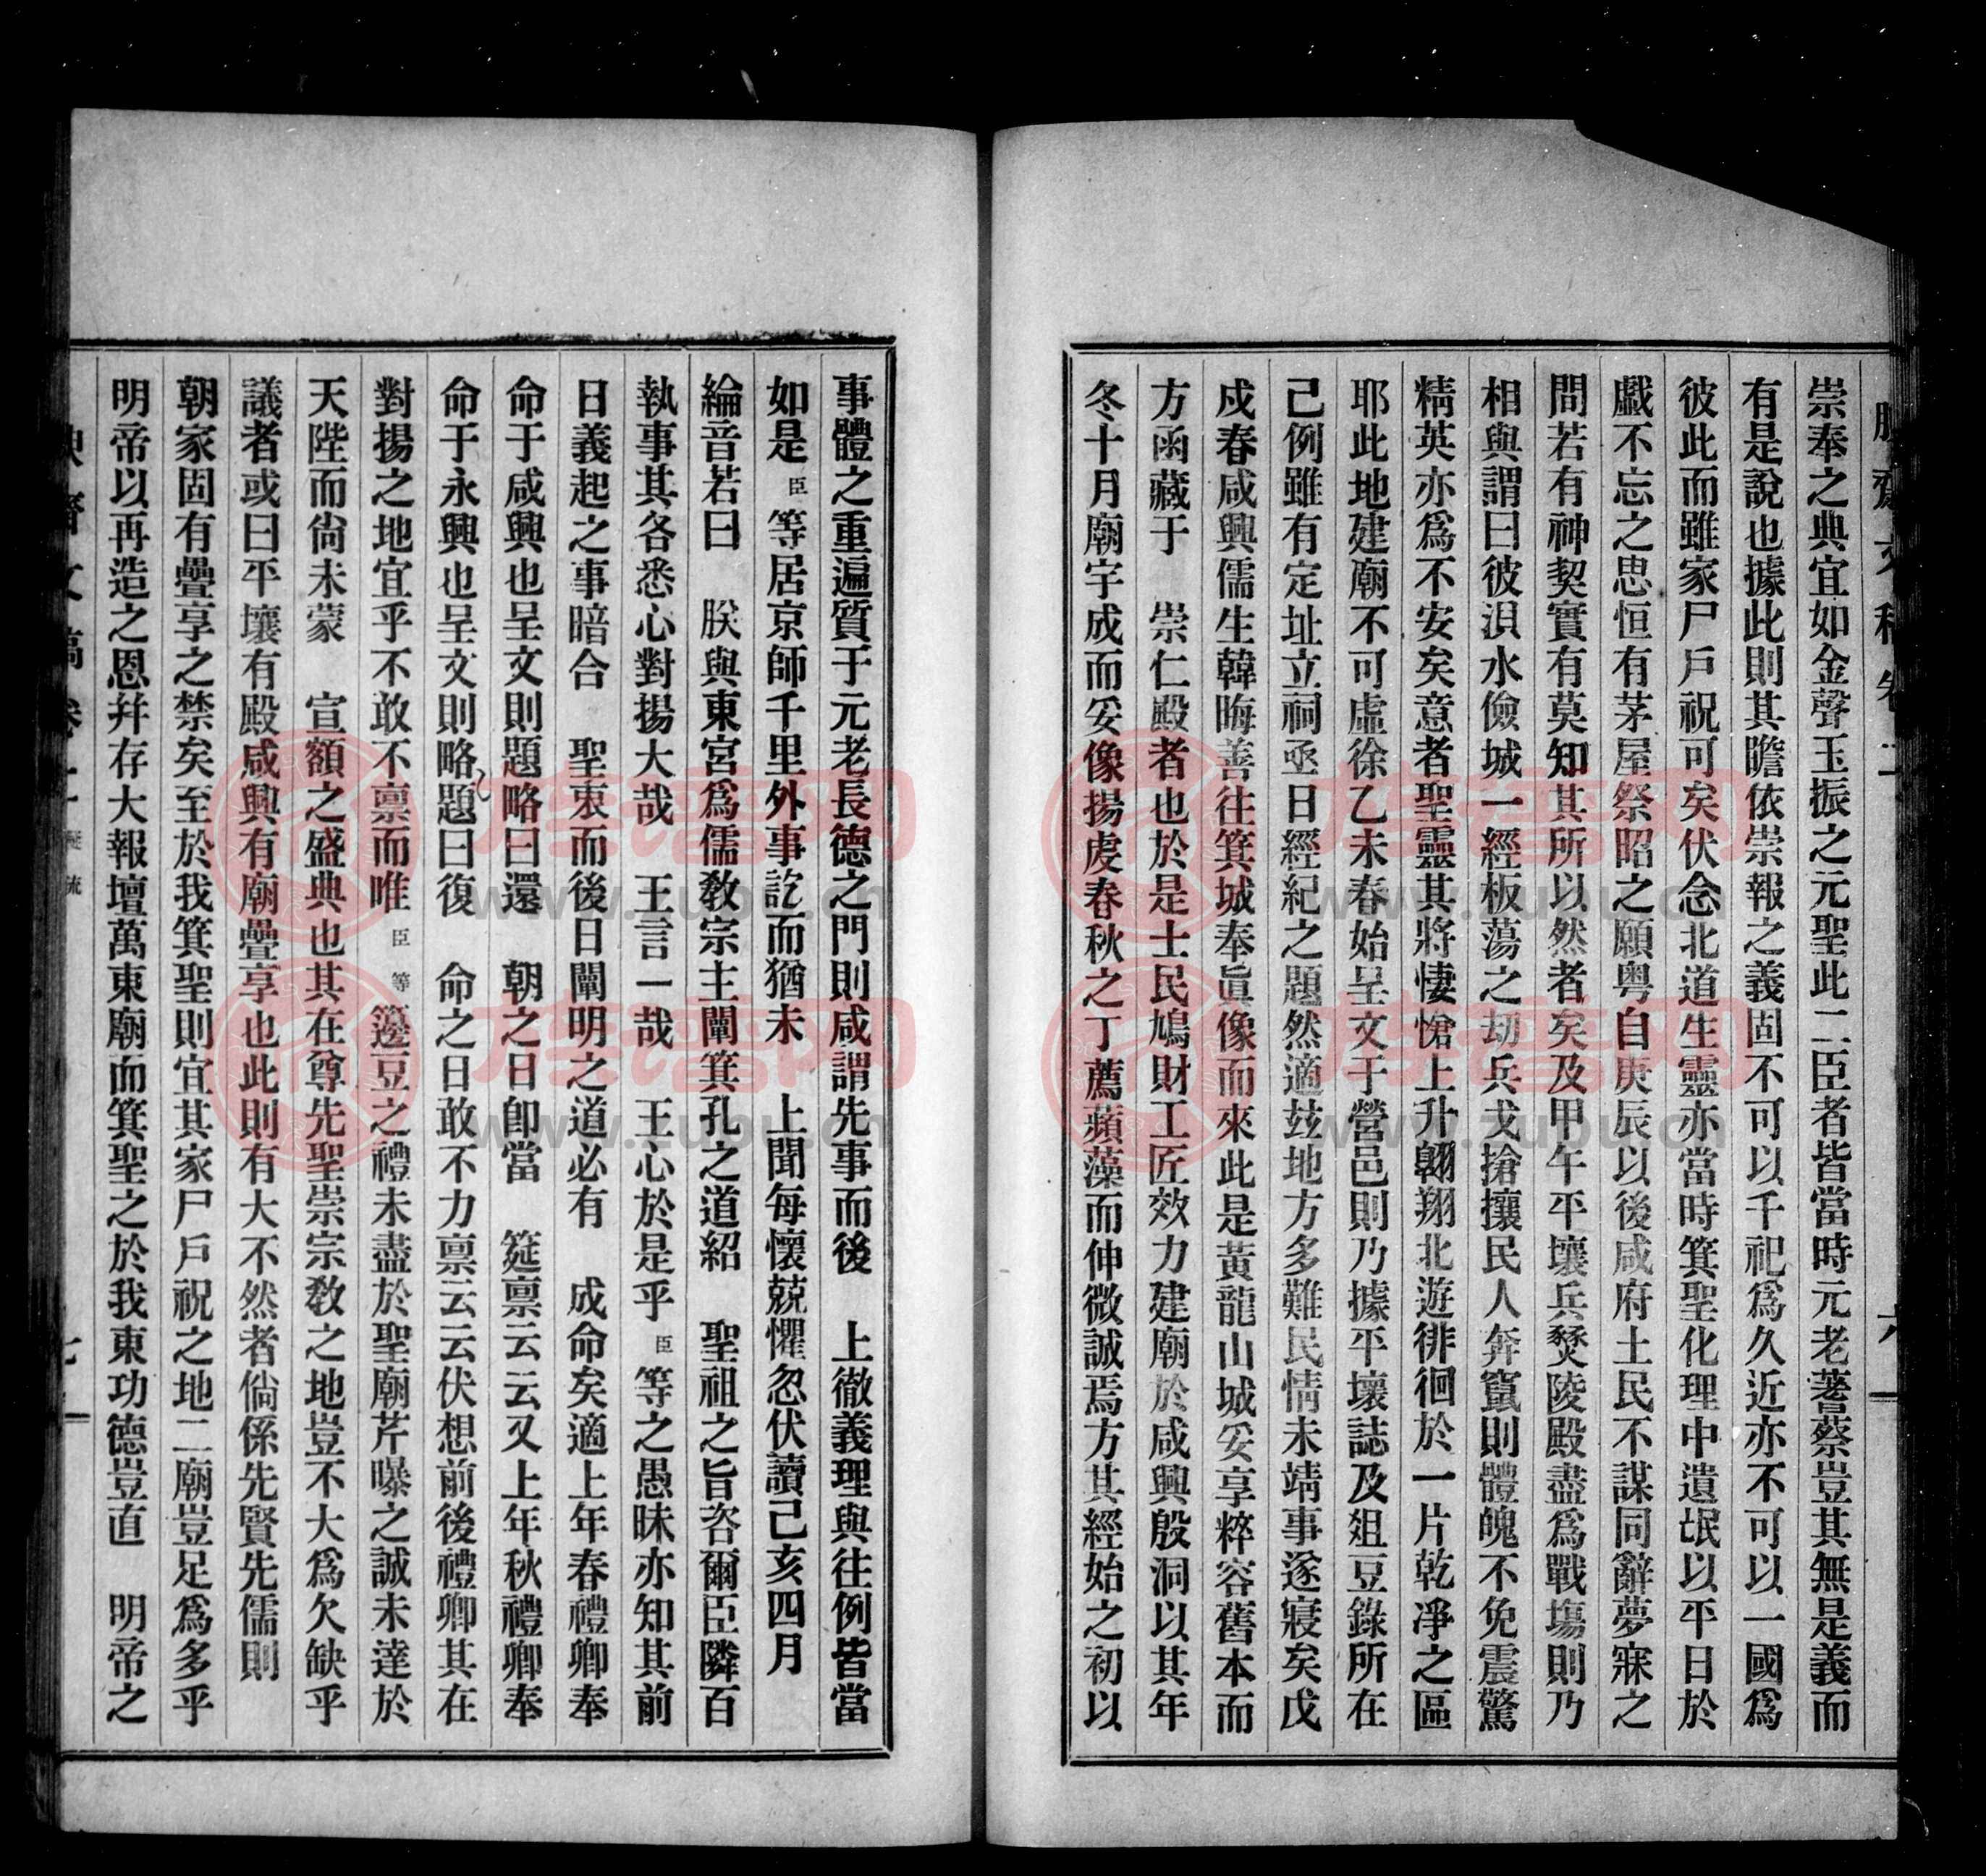 崇奉之典宜如金聲玉振之元聖此二臣者皆當時元老蓍蔡豈其無是義而
有是說也據此則其瞻依崇報之義固不可以千祀爲久近亦不可以一國爲
彼此而雖家尸戶祝可矣伏念北道生靈亦當時箕聖化理中遺氓以平日於
戱不忘之思恒有茅屋祭昭之願粤自庚辰以後咸府士民不謀同辭夢寐之
間若有神契實有莫知其所以然者矣及甲午平壤兵燹陵殿盡爲戰塲則乃
相與謂曰彼浿水儉城一經板蕩之刧兵戈搶攘民人奔竄則體魄不免震驚
精英亦爲不安矣意者聖靈其將悽愴上升翺翔北遊徘徊於一片乾凈之區
耶此地建廟不可虛徐乙未春始呈文于營邑則乃據平壤誌及俎豆錄所在
己例雖有定址立祠亟日經紀之題然適玆地方多難民情未靖事遂寢矣戊
戍春咸興儒生韓晦善往箕城奉眞像而來此是黃龍山城妥享粹容舊本而
方函藏于　崇仁殿者也於是士民鳩財工匠效力建廟於咸興殷洞以其年
冬十月廟宇成而妥像揚虔春秋之丁薦蘋藻而伸微誠焉方其經始之初以
事體之重遍質于元老長德之門則咸謂先事而後　上徹義理與往例皆當
如是臣等居京師千里外事訖而猶未　上聞每懷兢懼忽伏讀己亥四月
綸音若曰　朕與東宮爲儒敎宗主闡箕孔之道紹　聖祖之旨咨爾臣隣百
執事其各悉心對揚大哉　王言一哉　王心於是乎臣等之愚昧亦知其前
日義起之事暗合　聖衷而後日闡明之道必有　成命矣適上年春禮卿奉
命于咸興也呈文則題略曰還　朝之日卽當　筵禀云云又上年秋禮卿奉
命于永興也呈文則略題曰復　命之日敢不力禀云云伏想前後禮卿其在
對揚之地宜乎不敢不禀而唯臣等籩豆之禮未盡於聖廟芹曝之誠未達於
天陛而尙未蒙　宣額之盛典也其在尊先聖崇宗敎之地豈不大爲欠缺乎
議者或曰平壤有殿咸興有廟疊享也此則有大不然者倘係先賢先儒則
朝家固有疊享之禁矣至於我箕聖則宜其家尸戶祝之地二廟豈足爲多乎
明帝以再造之恩幷存大報壇萬東廟而箕聖之於我東功德豈直　明帝之
七